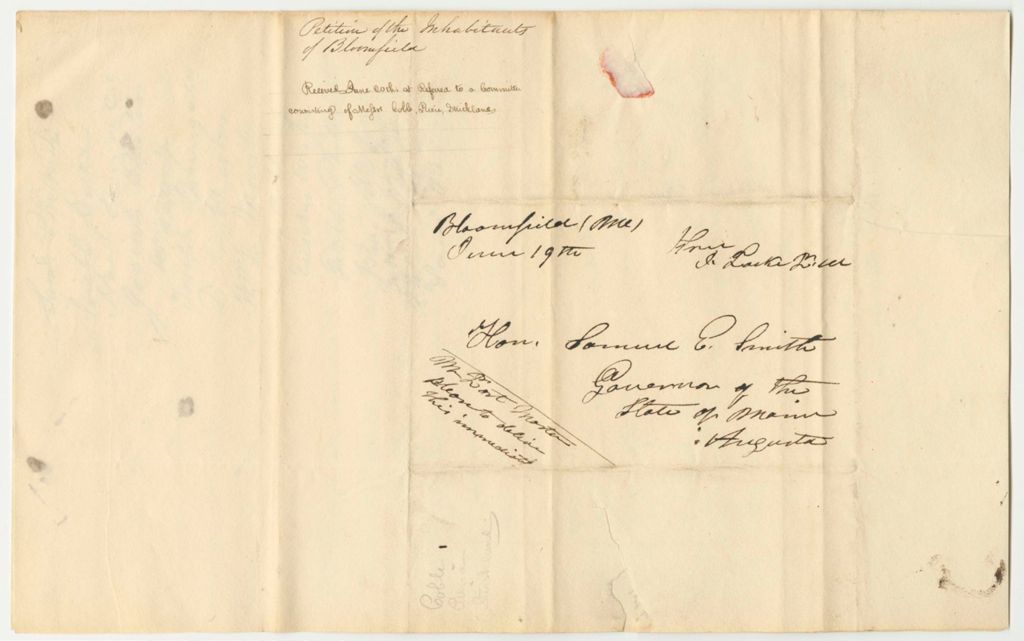 Petition of the Inhabitants
of Bloomfield
Received June 20th & Refered to a Committee
consisting of Messrs Cobb, Strickland
Bloomfield (Me)
June 19th
Free
J. Locke P.M
Hon. Samuel E. Smith
Governor of the
State of Maine
Augusta
Mr Post Master
please to deliver
this immediately